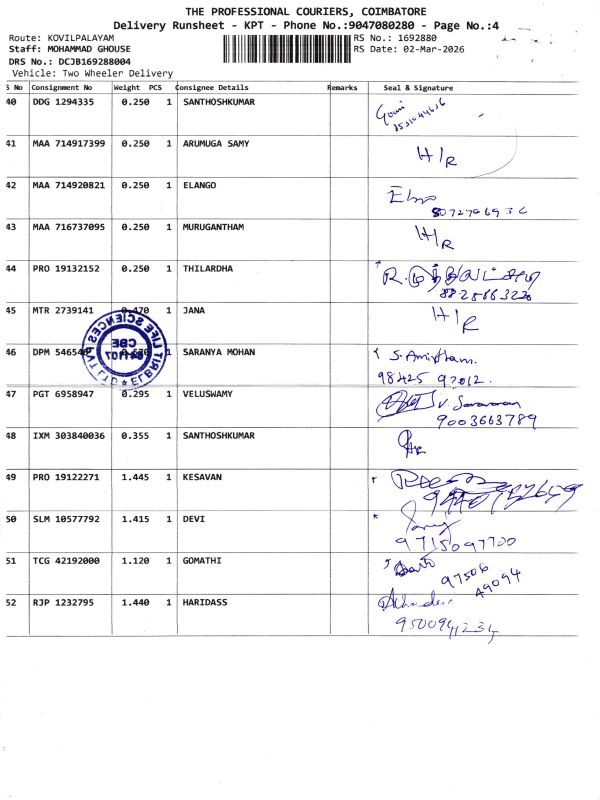 THE PROFESSIONAL COURIERS, COIMBATORE
Delivery Runsheet - KPT - Phone No.:9047080280 - Page No.:4
Route: KOVILPALAYAM RS No.: 1692880
Staff: MOHAMMAD GHOUSE RS Date: 02-Mar-2026
DRS No.: DCJB169288004
Vehicle: Two Wheeler Delivery
S No Consignment No Weight PCS Consignee Details Remarks Seal & Signature
40 DDG 1294335 0.250 1 SANTHOSHKUMAR
41 MAA 714917399 0.250 1 ARUMUGA SAMY H/R
42 MAA 714920821 0.250 1 ELANGO
43 MAA 716737095 0.250 1 MURUGANTHAM H/R
44 PRO 19132152 0.250 1 THILARDHA
45 MTR 2739141 0.470 1 JANA H/R
LIFE SCIENCES PVT LTD * ELBRIT
CBE
46 DPM 1 SARANYA MOHAN S. Amirtham.
98425 97012.
47 PGT 6958947 0.295 1 VELUSWAMY V. Saravanan
9003663789
48 IXM 303840036 0.355 1 SANTHOSHKUMAR
49 PRO 19122271 1.445 1 KESAVAN
50 SLM 10577792 1.415 1 DEVI
9715097700
51 TCG 42192000 1.120 1 GOMATHI
97506
49094
52 RJP 1232795 1.440 1 HARIDASS
9500941234